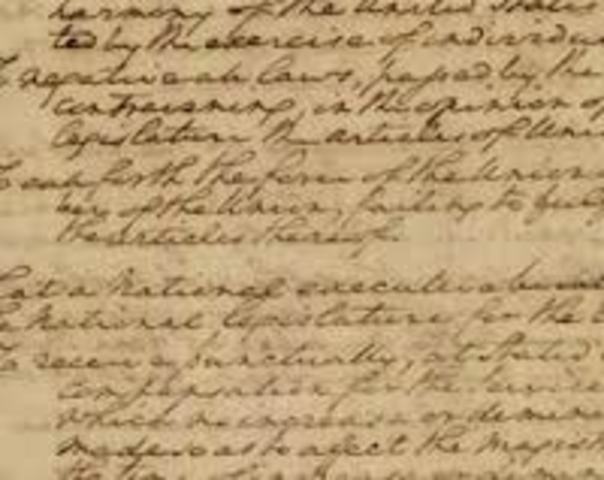 harmony of the United States
ted by the exercise of individu
To negative all Laws, passed by the
contravening, in the opinion of
legislature the articles of Uni
To call forth the force of the Union
ber of the Union, failing to ful
the articles thereof.
that a National executive
National legislature for the
To receive punctually, at stated
compensation for the service
which no increase or dimin
made so as to affect the Magist
the time of increase or